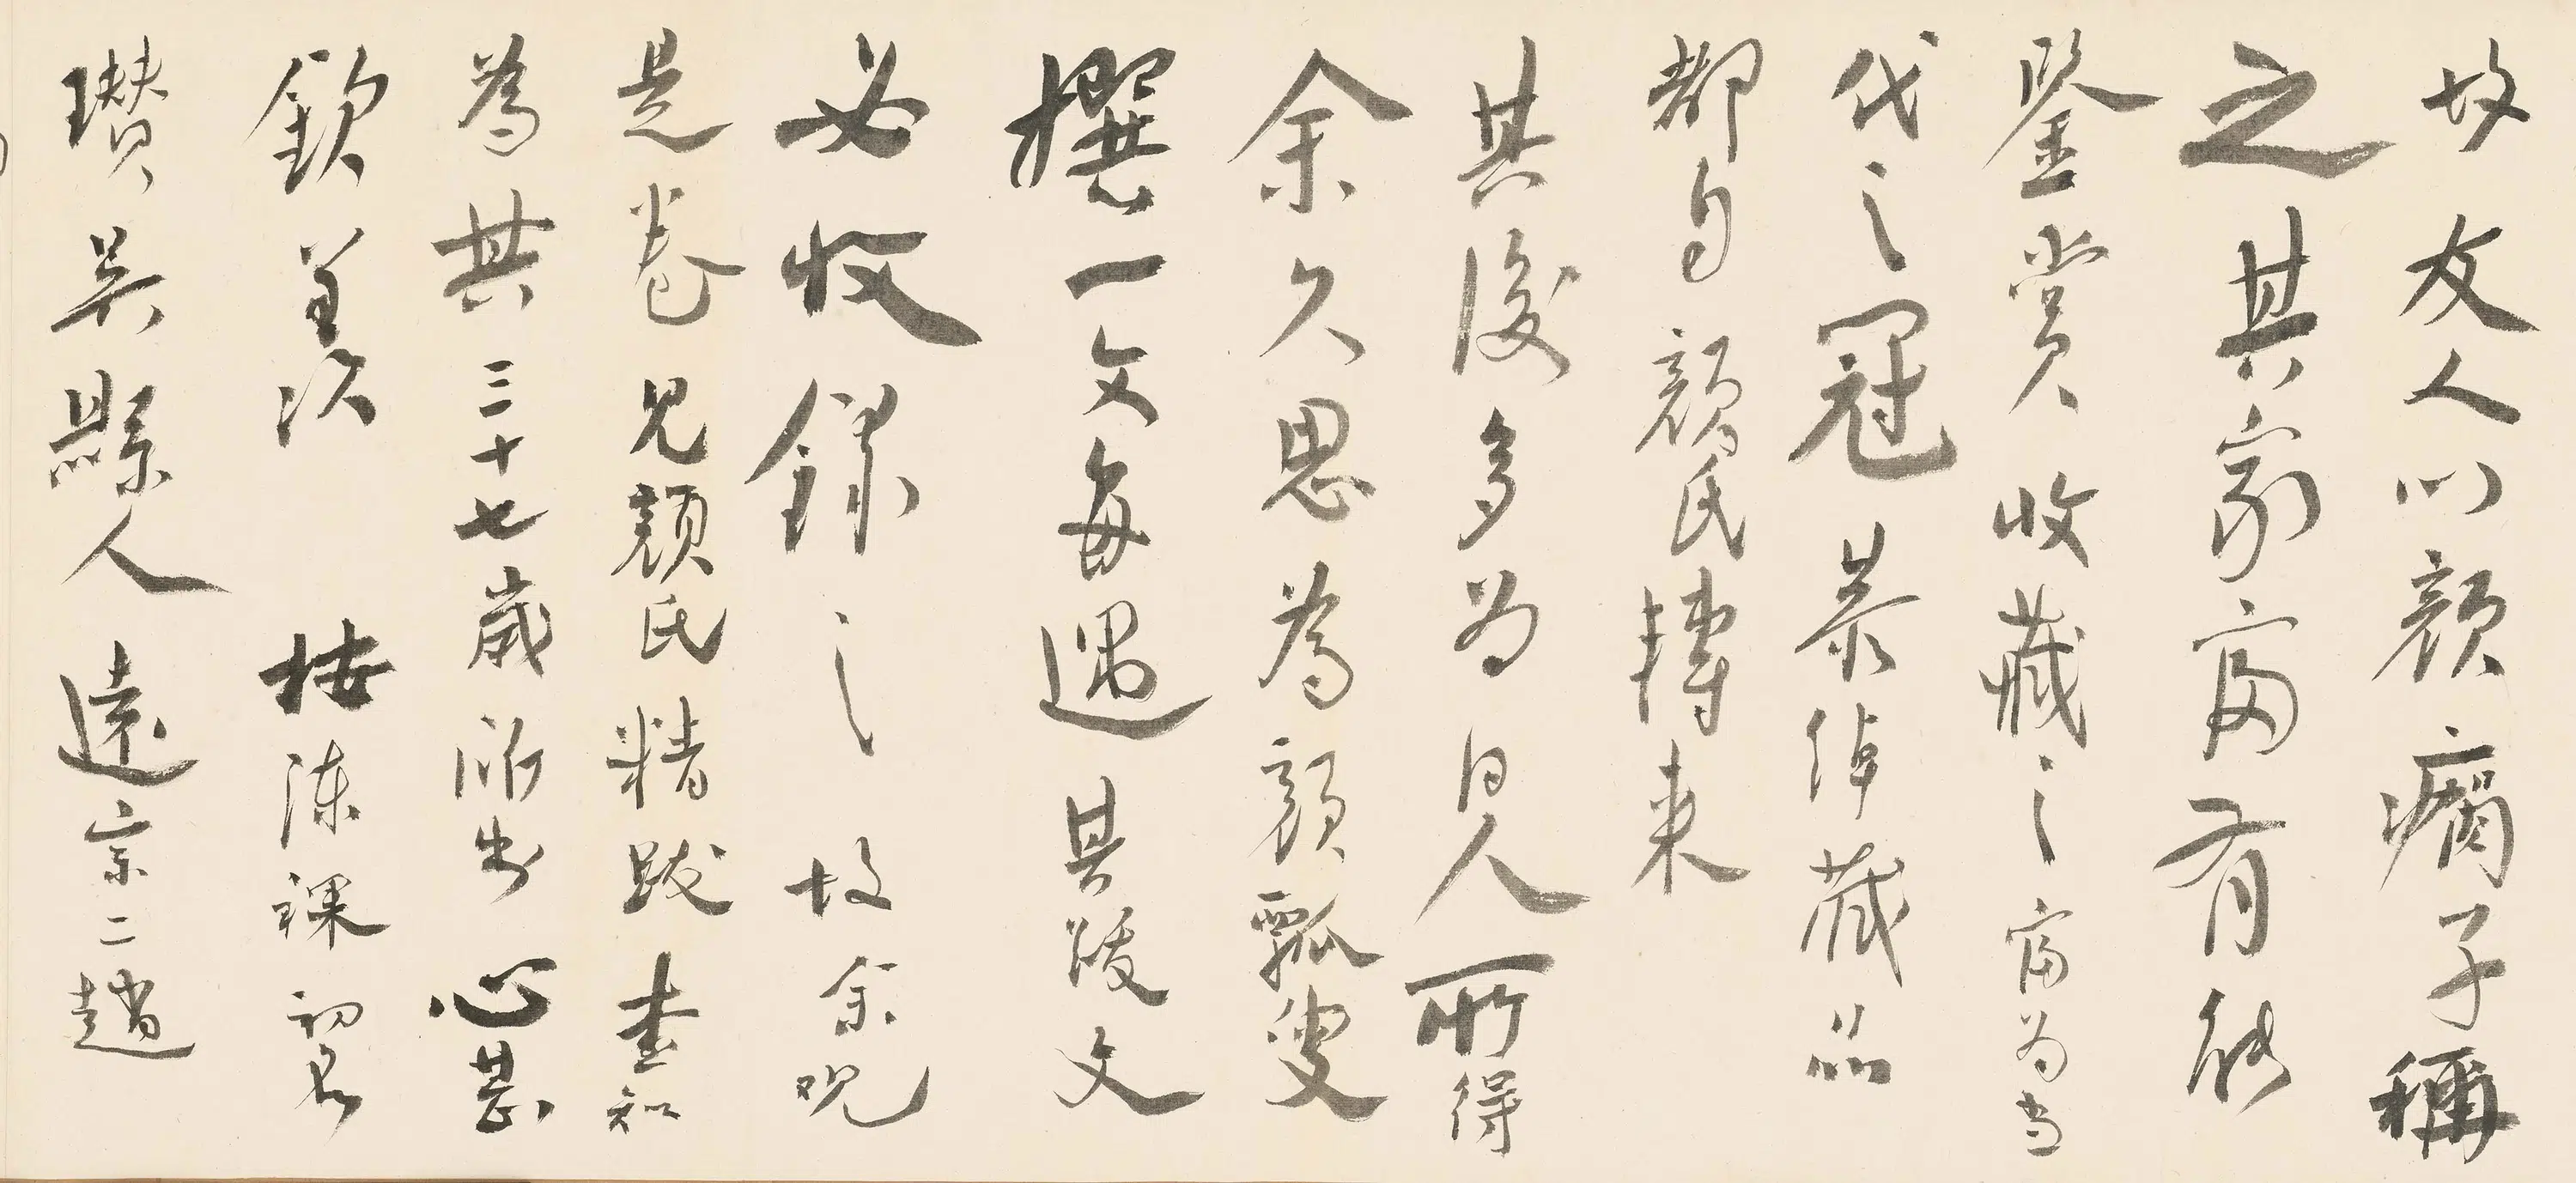 故友人以顏癟子稱
之其家富有能
鑒賞收藏之富為当
代之冠景緯藏品
都自顏氏轉來
其後多為日人所得
余久思為顏瓢叟
撰一文每遇其題文
必收錄之故余觀
是卷見顏氏精跋盡知
為其三十七歲所书心甚
欽羨次按陳裸初名
瓚吳縣人遠宗二趙